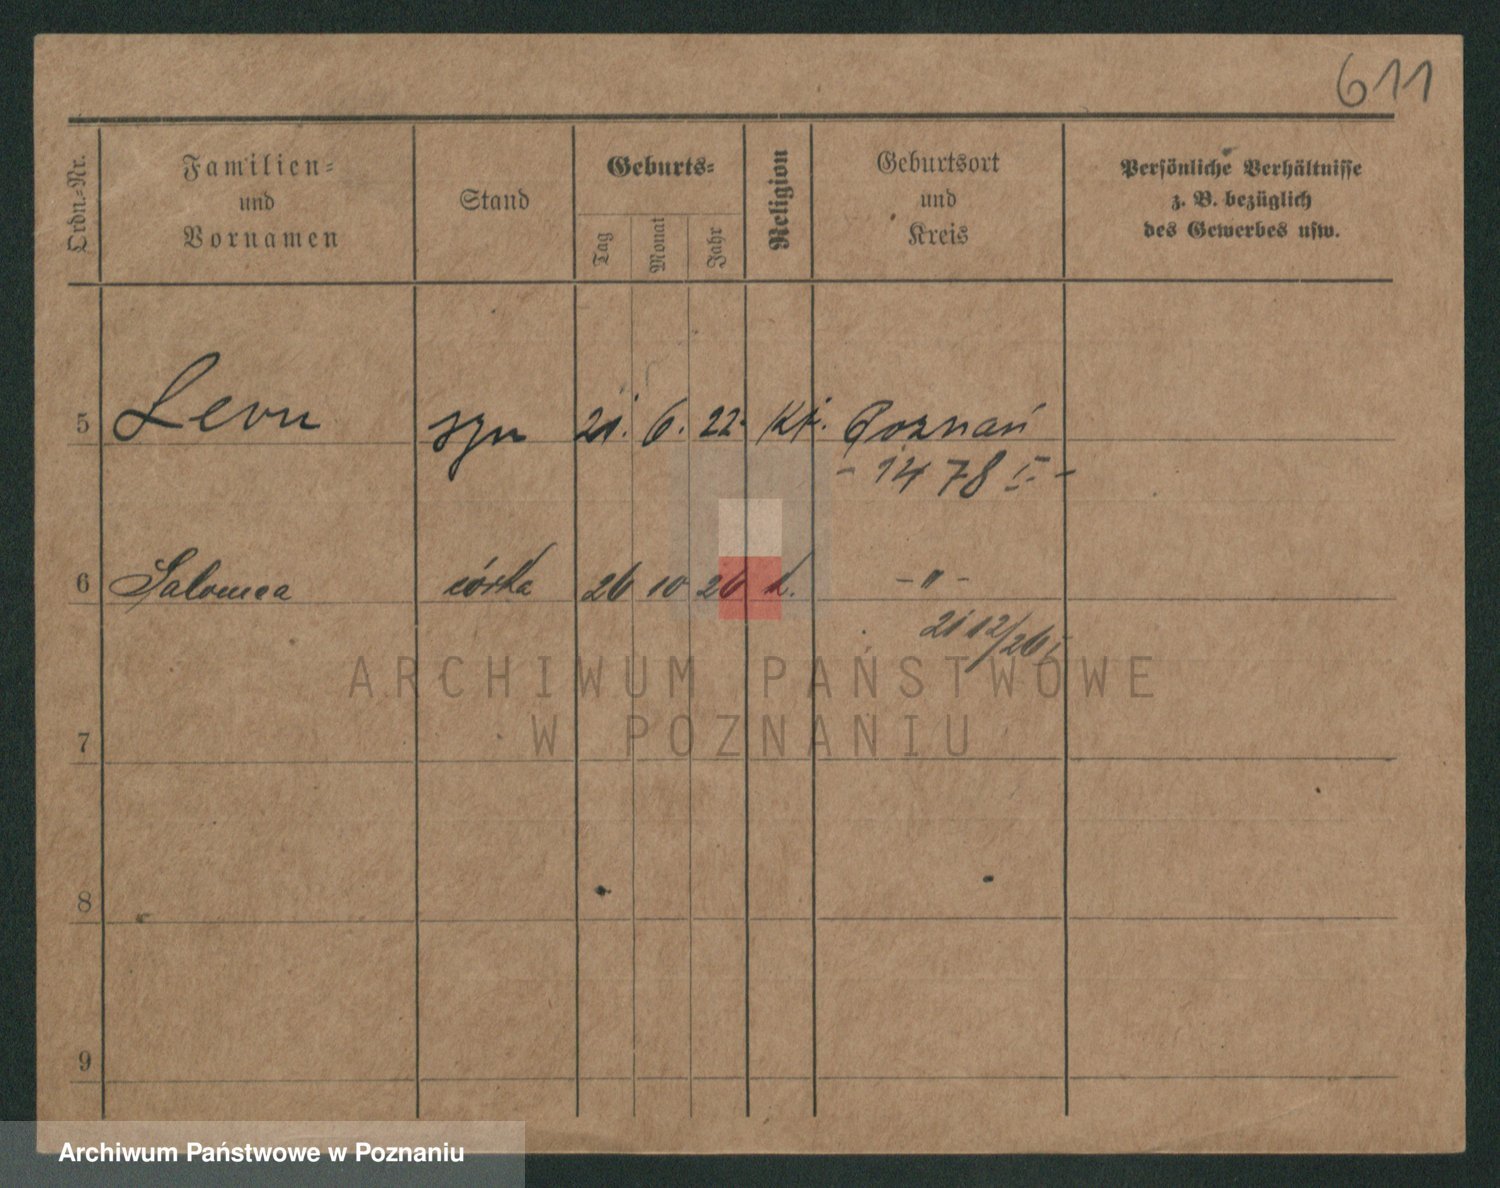 611
Ordn.-Nr.
Familien-
und
Vornamen
Stand
Geburts-
Tag
Monat
Jahr
Religion
Geburtsort
und
Kreis
Persönliche Verhältnisse
z. B. bezüglich
des Gewerbes usw.
5 Leon syn 21. 6. 22. Kt. Poznań
- 1478 I -
6 Salomea córka 26 10 26 k. - " -
21 12/26
7
8
9
ARCHIWUM PAŃSTWOWE
W POZNANIU
Archiwum Państwowe w Poznaniu